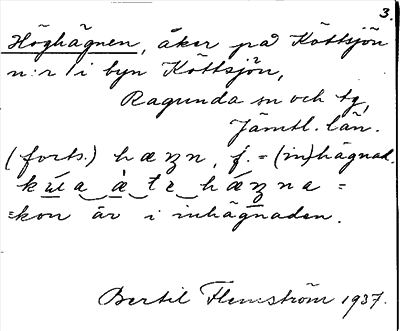 3.
Höghägnen, åker på Köttsjön
n:r 1 i byn Köttsjön,
Ragunda sn och tg,
Jämtl. län.
(forts.) hæŋn, f. = (in)hägnad.
hæŋna =
=kon är i inhägnaden.
Bertil Flemström 1937.